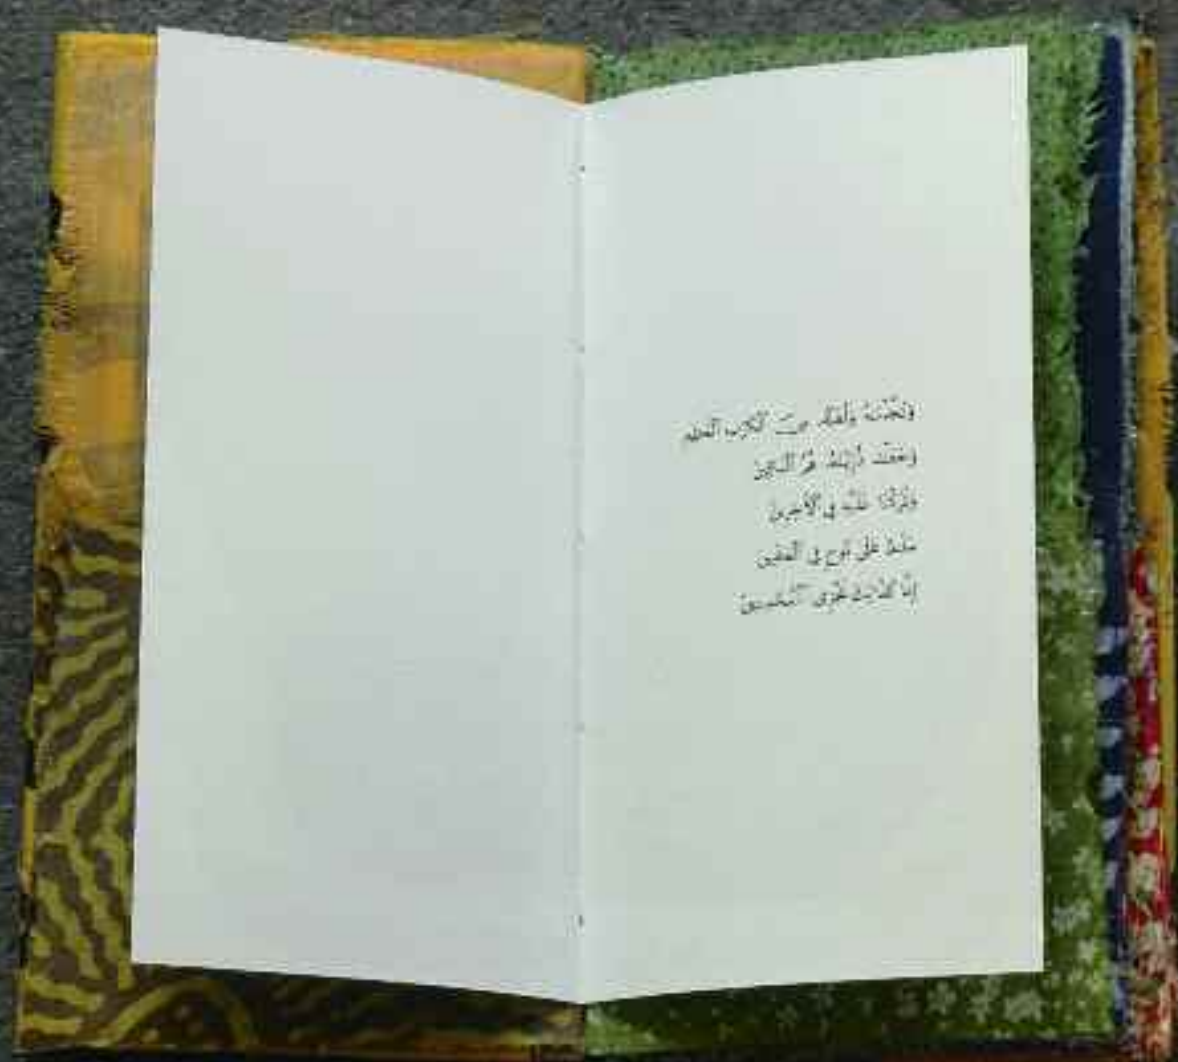 وَنَجَّيْنَٰهُ وَأَهْلَهُۥ مِنَ ٱلْكَرْبِ ٱلْعَظِيمِ
وَجَعَلْنَا ذُرِّيَّتَهُۥ هُمُ ٱلْبَاقِينَ
وَتَرَكْنَا عَلَيْهِ فِى ٱلْءَاخِرِينَ
سَلَٰمٌ عَلَىٰ نُوحٍ فِى ٱلْعَٰلَمِينَ
إِنَّا كَذَٰلِكَ نَجْزِى ٱلْمُحْسِنِينَ